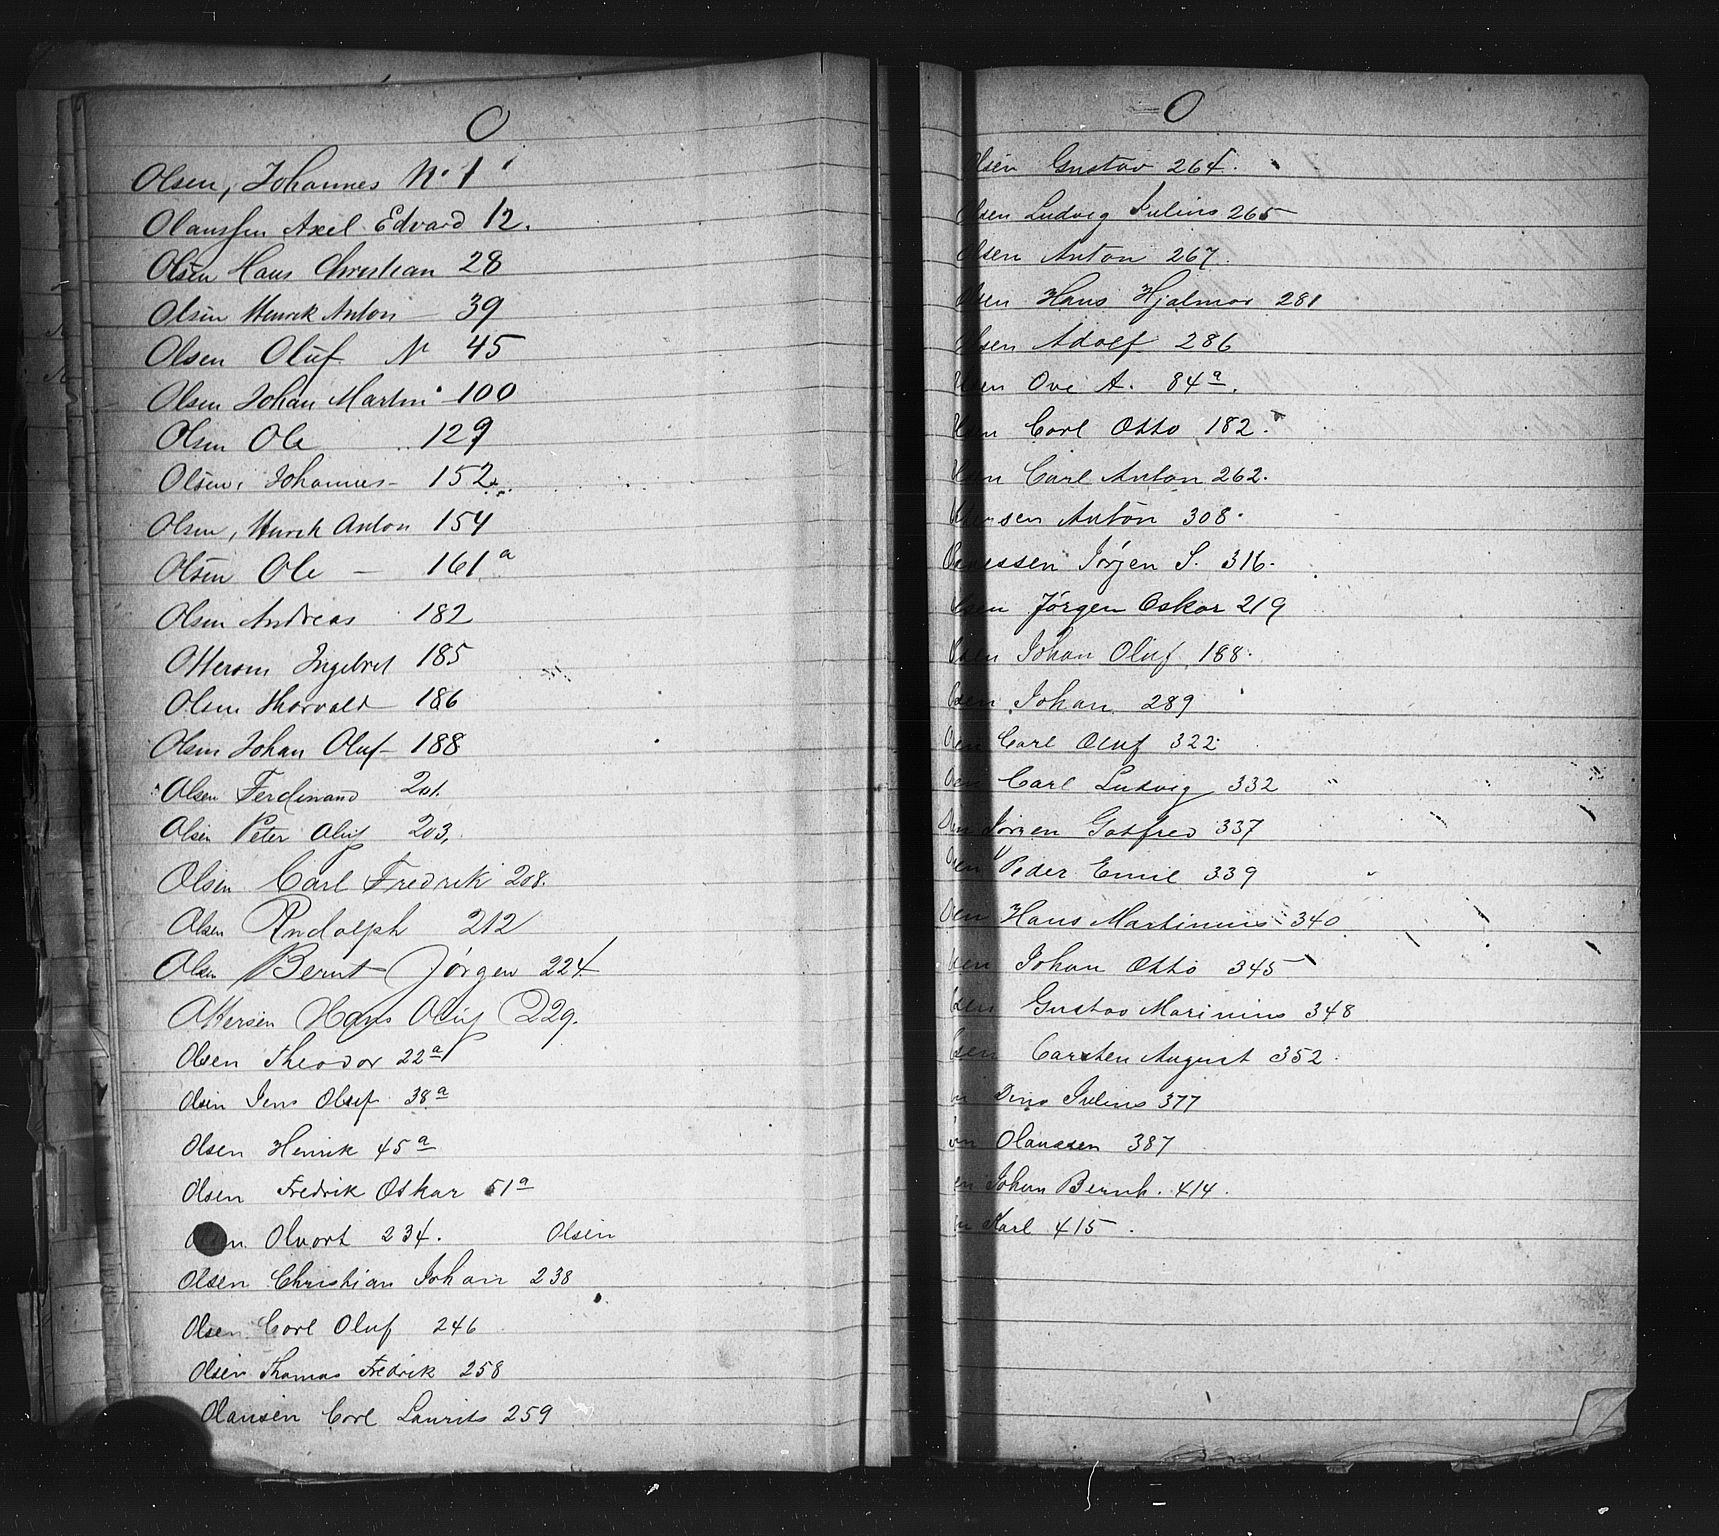 O
Olsen, Johannes No 1
Olaussen Axel Edvard 12.
Olsen Hans Christian 28
Olsen Henrik Anton 39
Olsen Oluf N 45
Olsen Johan Martin 100
Olsen Ole 129
Olsen, Johannes - 152
Olsen, Henrik Anton 154
Olsen Ole - 161 a
Olsen Andreas 182
Ottersen Ingebret 185
Olsen Thorvald - 186
Olsen Johan Oluf - 188
Olsen Ferdinand 201.
Olsen Peter Oluf 203,
Olsen Carl Fredrik 208.
Olsen Rudolph 212
Olsen Bernt Jørgen 224
Ottersen Hans Oluf 229.
Olsen Theodor 22 a
Olsen Jens Oluf 38 a
Olsen Henrik 45 a
Olsen Fredrik Oskar 51 a
Olsen Olvart 234. Olsen
Olsen Christian Johan 238
Olsen Carl Oluf 246
Olsen Thomas Fredrik 258
Olausen Carl Laurits 259
O
Olsen Gustav 264.
Olsen Ludvig Julius 265
Olsen Anton 267.
Olsen Hans Hjalmar 281
Olsen Adolf 286
Olsen Ove A. 84 a.
Olsen Carl Otto 182.
Olsen Carl Anton 262.
Anton 308.
Jørjen S. 316.
Olsen Jørgen Oskar 219
Olsen Johan Oluf 188.
Olsen Johan 289
Carl Oluf 322
Carl Ludvig 332
Jørgen Gotfred 337
Peder Emil 339
Hans Martinius 340
Johan Otto 345
Gustav Marinius 348
Carsten August 352.
Julius 377
Olaussen 387
Johan Bernh. 414.
Karl 415.